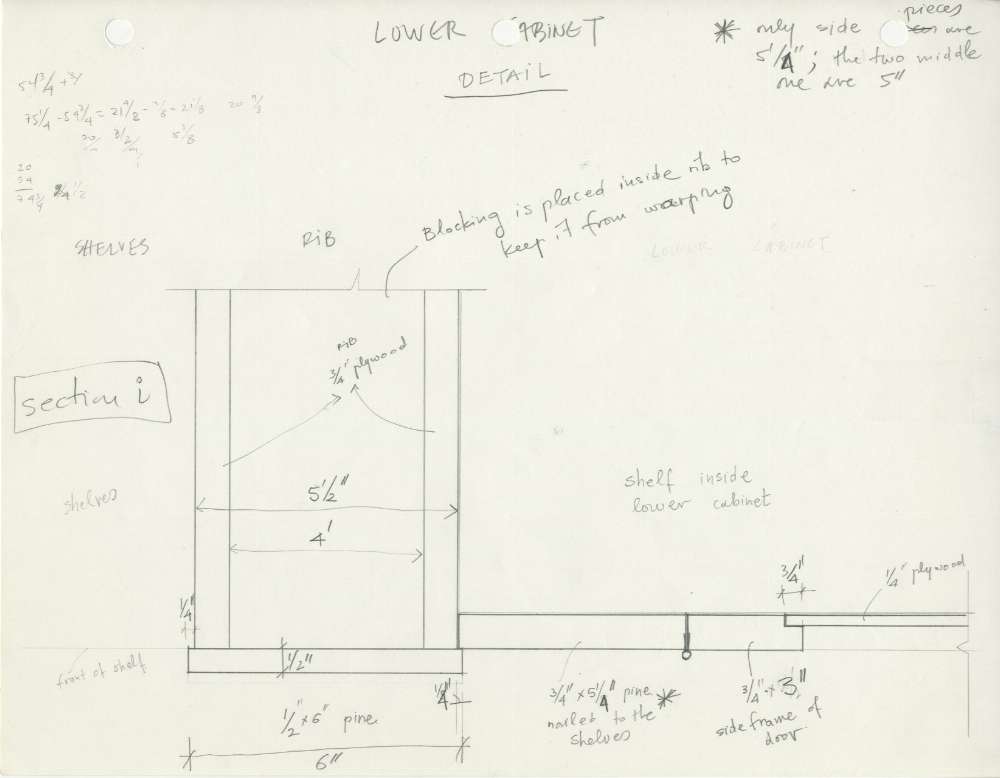 LOWER CABINET
DETAIL
* only side pieces are
5 1/4"; the two middle
one are 5"
54 3/4 + 3/4
20
54
74 3/4
SHELVES
RIB
Blocking is placed inside rib to
keep it from warping
LOWER CABINET
RIB
3/4" plywood
section i
shelves
5 1/2"
4'
shelf inside
lower cabinet
3/4"
1/4" plywood
1/4"
front of shelf
1/2"
1/4"
3/4" x 5 1/4" pine *
nailed to the
shelves
3/4" x 3"
side frame of
door
1/2" x 6" pine
6"